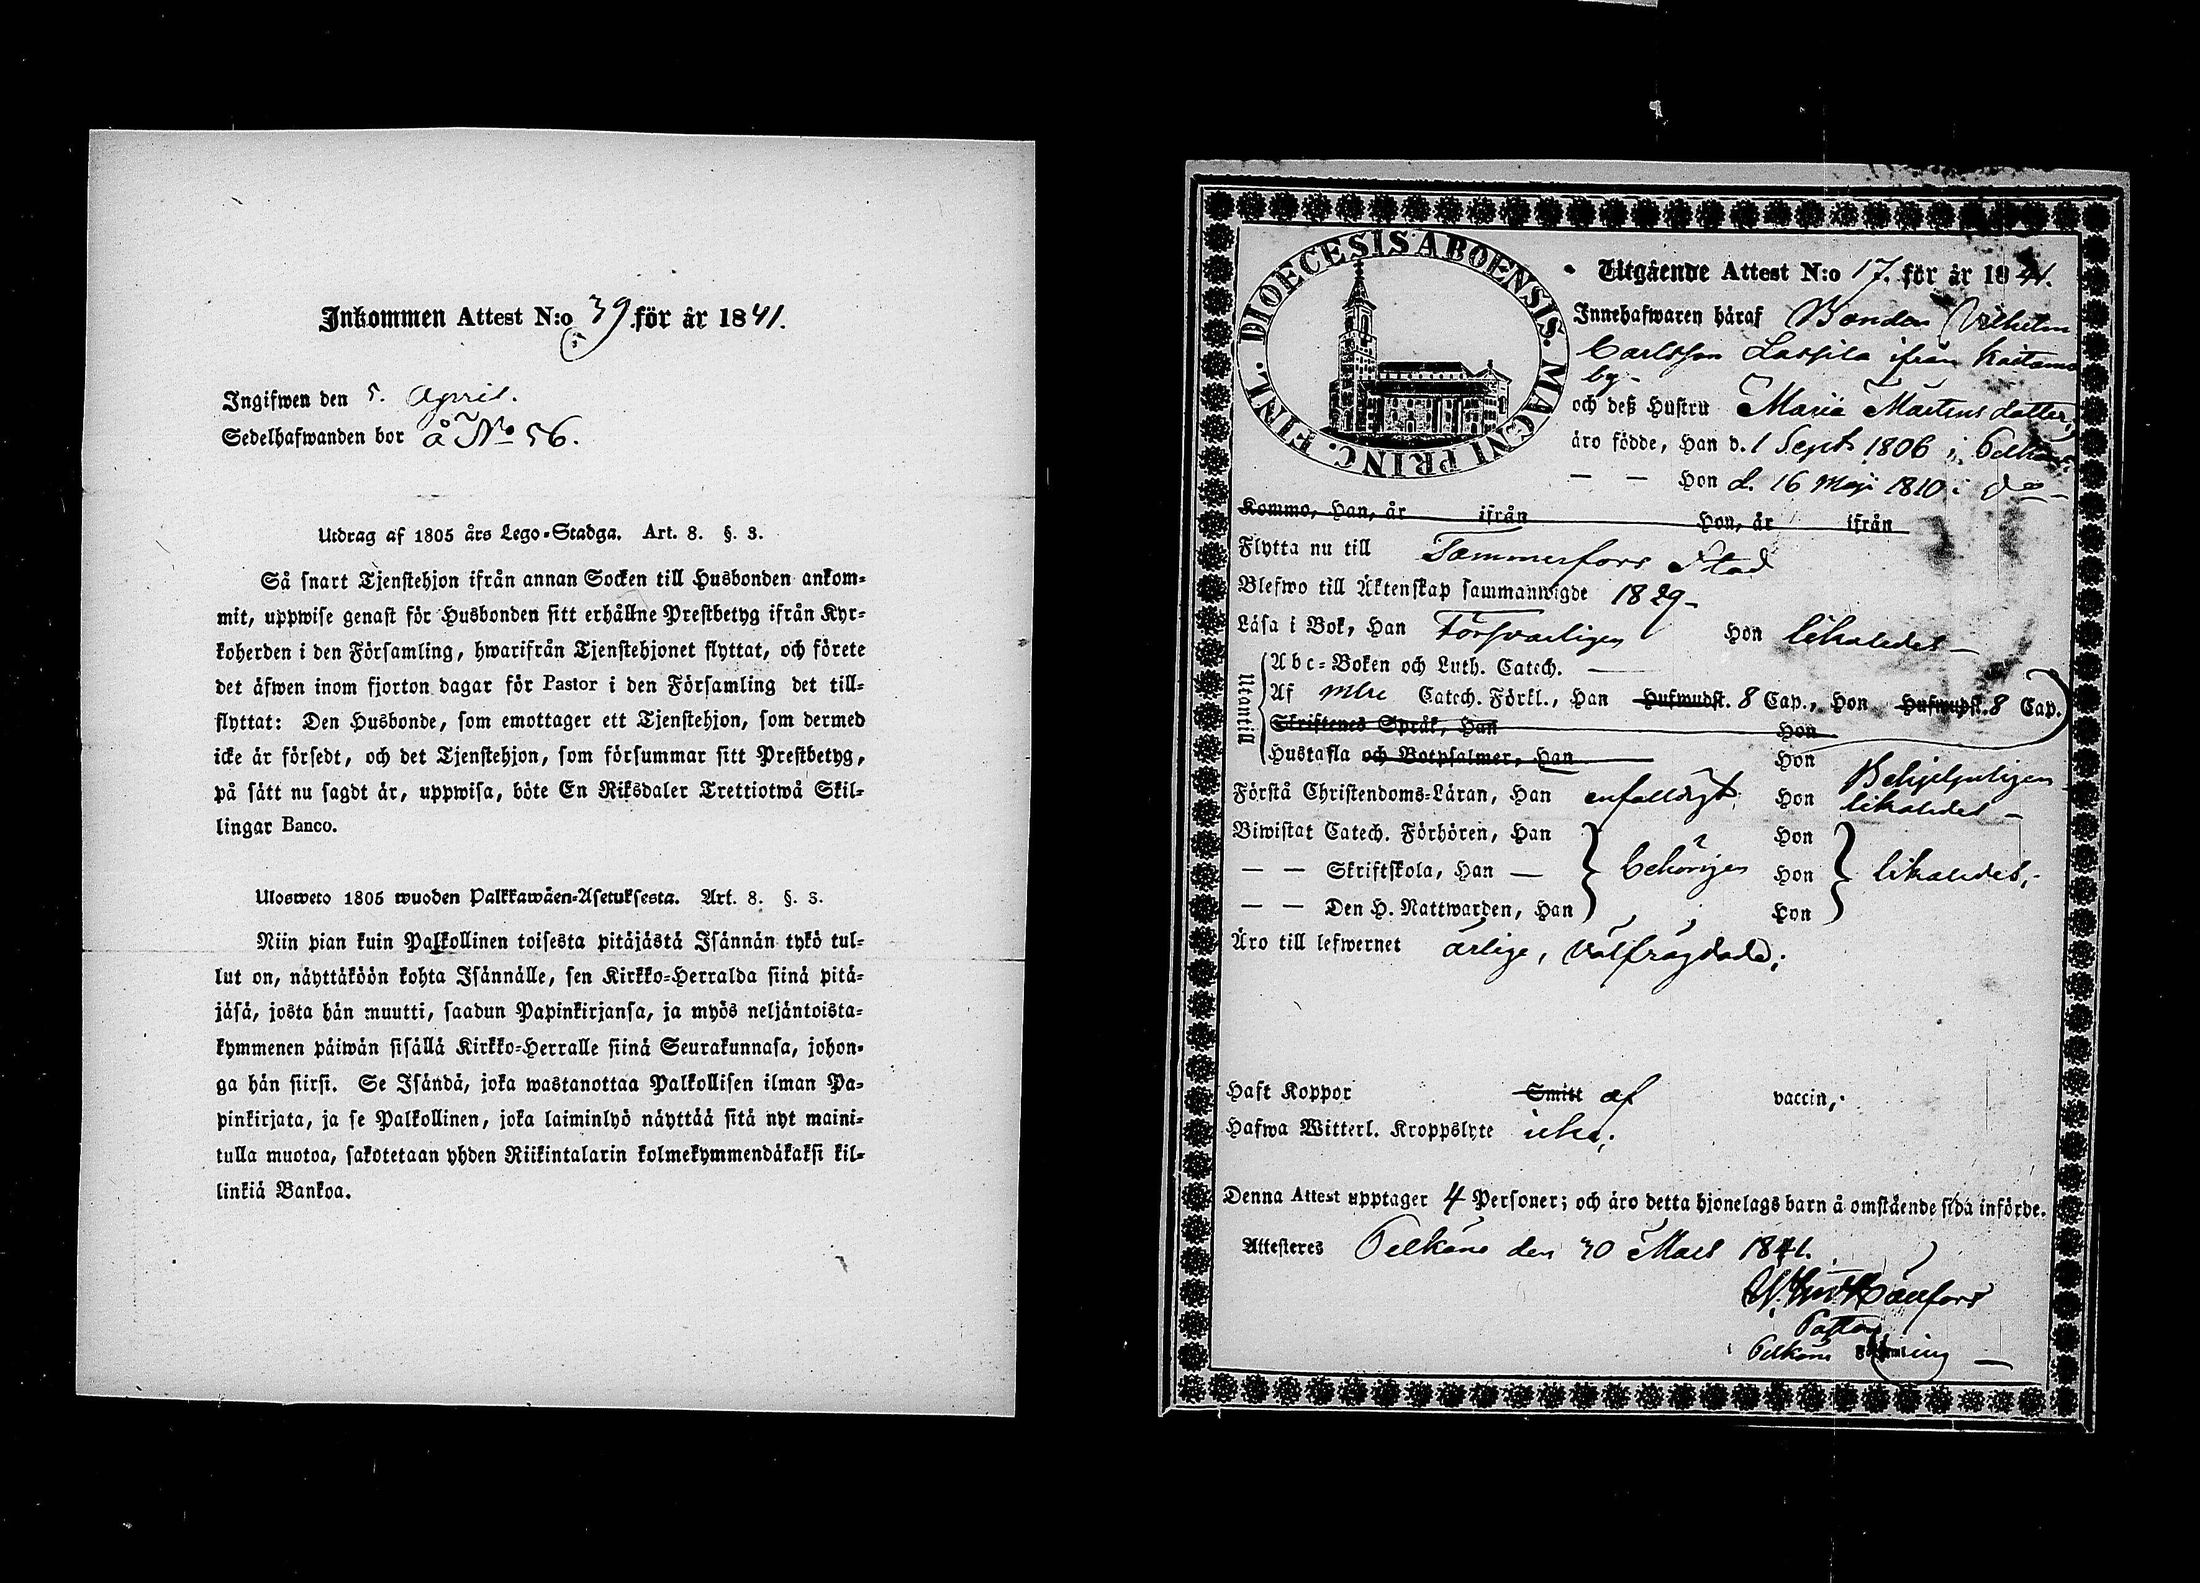 Inkommen Attest N:o 39 för år 1841.
Ingifwen den 5. April.
Sedelhafwanden bor å No 56.
Utdrag af 1805 års Lego-Stadga. Art. 8. §. 3.
Så snart Tjenstehjon ifrån annan Socken till Husbonden ankom=
mit, uppwise genast för Husbonden sitt erhållne Prestbetyg ifrån Kyr=
koherden i den Församling, hwarifrån Tjenstehjonet flyttat, och förete
det äfwen inom fjorton dagar för Pastor i den Församling det till=
flyttat: Den Husbonde, som emottager ett Tjenstehjon, som dermed
icke är försedt, och det Tjenstehjon, som försummar sitt Prestbetyg,
på sätt nu sagdt är, uppwisa, böte En Riksdaler Trettiotwå Skil=
lingar Banco.
Ulosweto 1805 wuoden Palkkawäen=Asetuksesta. Art. 8. §. 3.
Niin pian kuin Palkollinen toisesta pitäjästä Isännän tykö tul=
lut on, näyttäköön kohta Isännälle, sen Kirkko=Herralda siinä pitä=
jäsä, josta hän muutti, saadun Papinkirjansa, ja myös neljäntoista=
kymmenen päiwän sisällä Kirkko=Herralle siinä Seurakunnasa, johon=
ga hän siirsi. Se Isändä, joka wastanottaa Palkollisen ilman Pa=
pinkirjata, ja se Palkollinen, joka laiminlyö näyttää sitä nyt maini=
tulla muotoa, sakotetaan yhden Riikintalarin kolmekymmendäkaksi kil=
linkiä Bankoa.
DIOECESIS ABOENSIS. MAGNI PRINC. FINL.
Utgående Attest N:o 17. för år 1841.
Innehafwaren häraf Bonden Vilhelm
Carlsson Lassila ifrån Kaitamo
by-
och deß Hustru Maria Mårtensdotter,
äro födde, Han d. 1 Sept 1806 i Pelkäne
— — Hon d. 16 Maji 1810 i do -
Kommo, Han, år ifrån Hon, år ifrån
Flytta nu till Tammerfors Stad
Blefwo till Äktenskap sammanwigde 1829-
Läsa i Bok, Han Försvarligen Hon likaledes —
Utantill
Abc=Boken och Luth. Catech. —
Af mlre Catech. Förkl., Han Hufwudst. 8 Cap., Hon Hufwudst. 8 Cap.
Skriftenes Språk, Han Hon
Hustafla och Botpsalmer, Han Hon Behjelpeligen
Förstå Christendoms=Läran, Han enfaldigt; Hon likaledes —
Biwistat Catech. Förhören, Han Hon
— — Skriftskola, Han — behörigen Hon likaledes,-
— — Den H. Nattwarden, Han Hon
Äro till lefwernet ärlige, välfrägdade;
Haft Koppor Smitt af vaccin,.
Hafwa Witterl. Kroppslyte icke;
Denna Attest upptager 4 Personer; och äro detta hjonelags barn å omstående sida införde.
Attesteres Pelkäne den 30 Mars 1841.
Pastor
Pelkäne